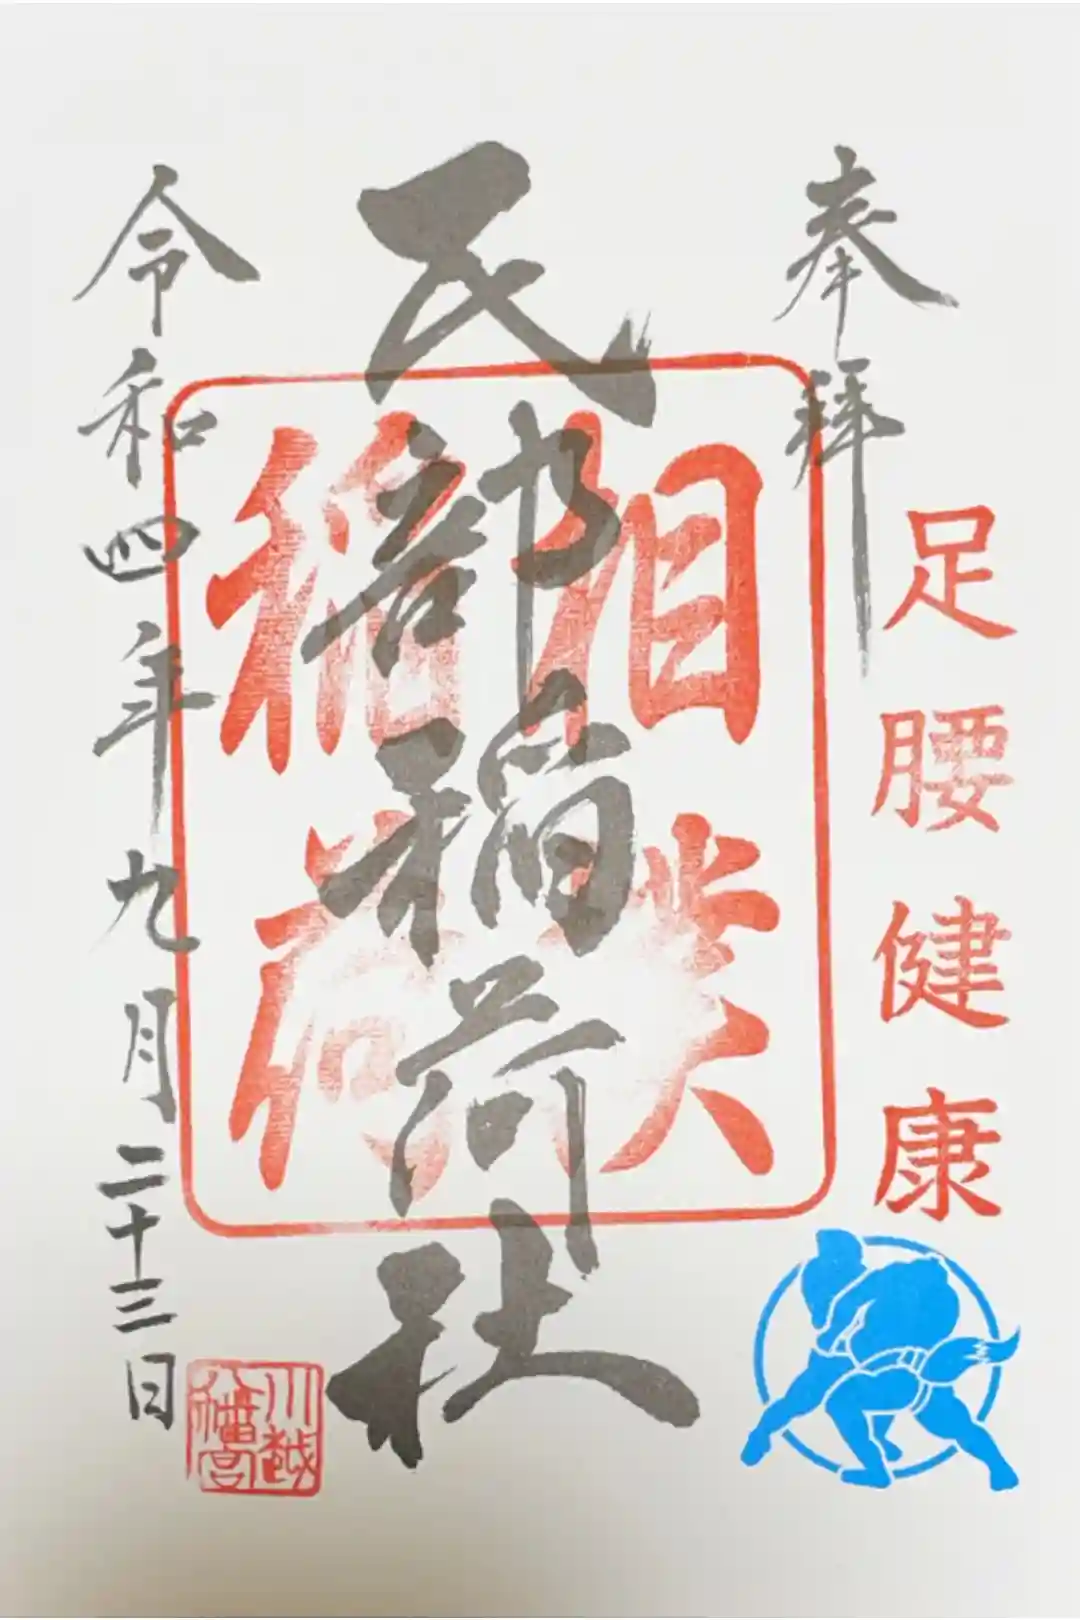 奉拝
足腰健康
相撲
稲荷
民部稲荷社
令和四年九月二十三日
川越
八幡宮